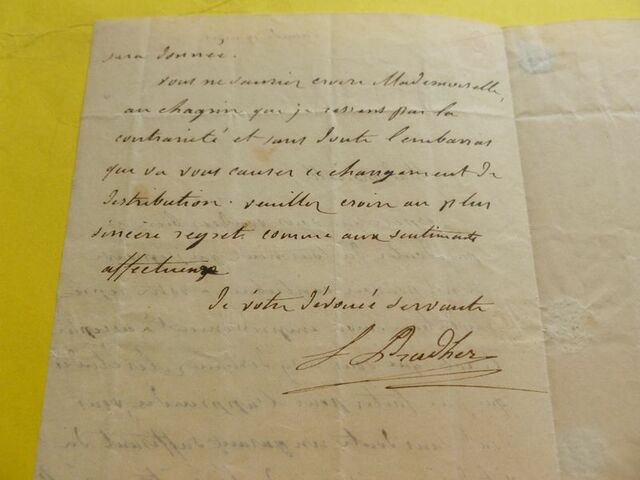 sera donnée.
vous ne sauriez croire Mademoiselle,
au chagrin que je ressens par la
contrariété et sans doute l'embarras
que va vous causer ce changement de
distribution. veuillez croire au plus
sincère regret comme aux sentiments
affectueux
de votre dévouée servante
Pradher